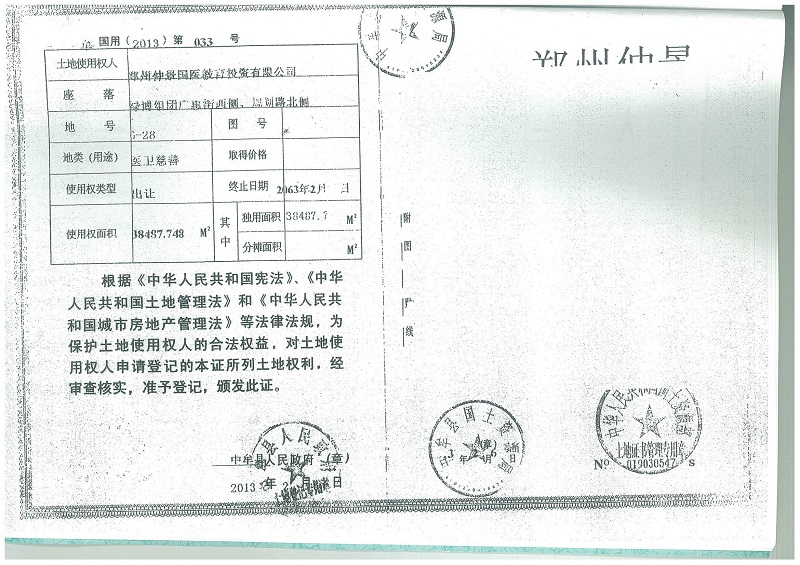 国用(2013)第 033 号
土地使用权人 郑州仲景国医教育投资有限公司
座 落 绿博组团广惠街西侧、规划路北侧
地 号 -28 图 号
地类(用途) 医卫慈善 取得价格
使用权类型 出让 终止日期 2063年2月 日
使用权面积 38487.748 M² 其中 独用面积 38487.7 M²
分摊面积 M²
根据《中华人民共和国宪法》、《中华
人民共和国土地管理法》和《中华人民共
和国城市房地产管理法》等法律法规，为
保护土地使用权人的合法权益，对土地使
用权人申请登记的本证所列土地权利，经
审查核实，准予登记，颁发此证。
中牟县人民政府 (章)
2013 年 2 月 日
附
图
线
中牟县国土资源局
(章)
年 月 日
中华人民共和国国土资源部
土地证书管理专用章
№ 019030547 s